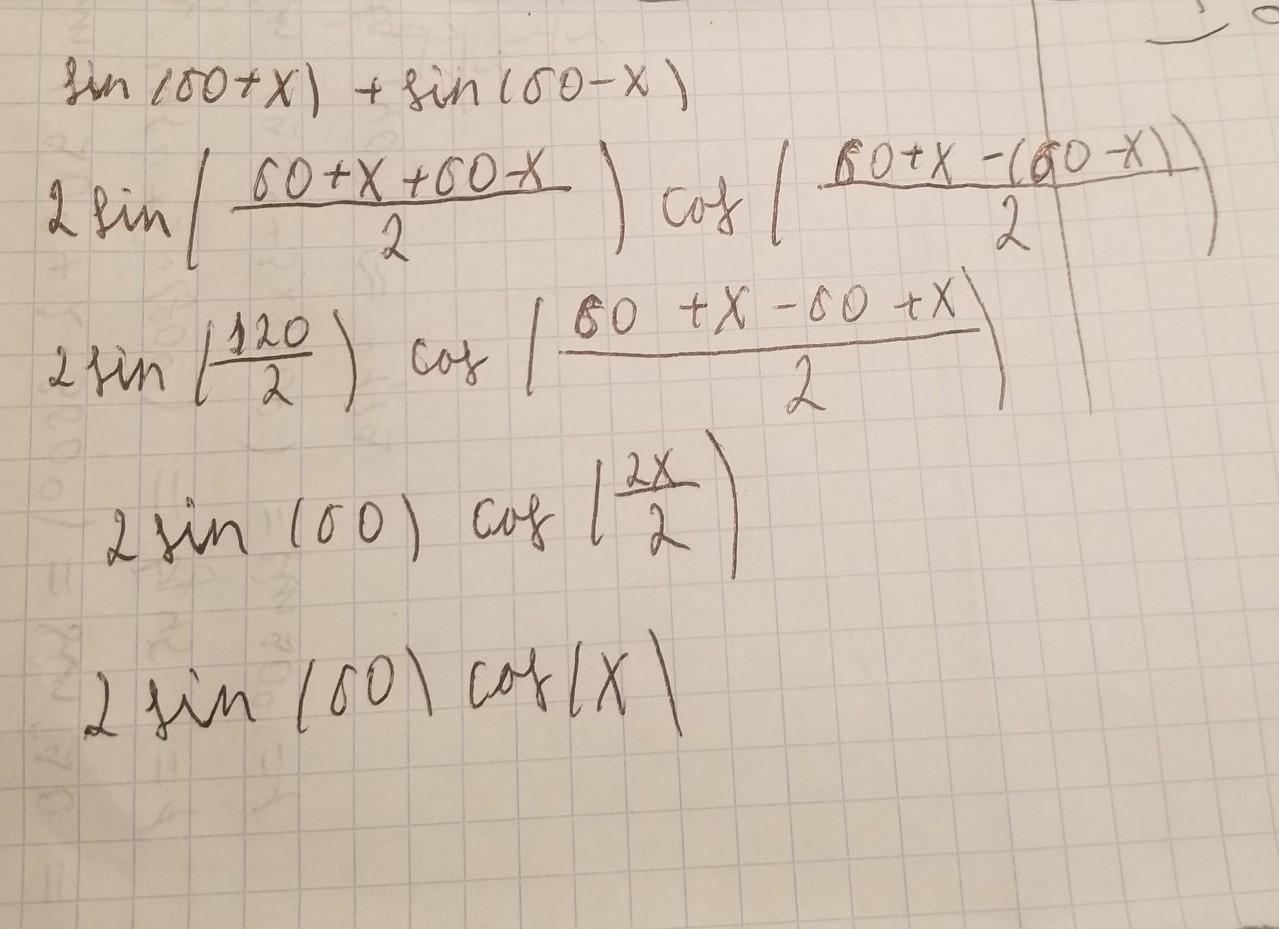 sin (60+x) + sin (60-x)
2 sin ( (60+x+60-x)/2 ) cos ( (60+x-(60-x))/2 )
2 sin (120/2) cos ( (60+x-60+x)/2 )
2 sin (60) cos (2x/2)
2 sin (60) cos(x)